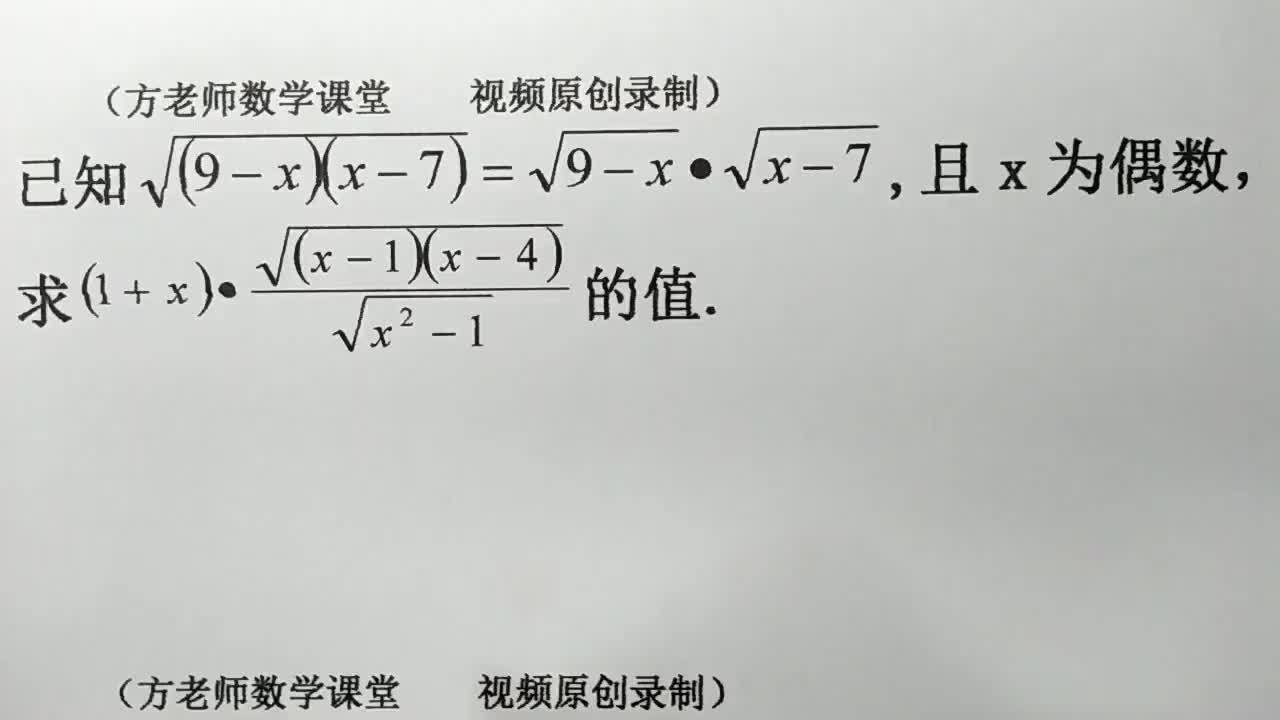 （方老师数学课堂 视频原创录制）
已知 $\sqrt{(9-x)(x-7)}=\sqrt{9-x}•\sqrt{x-7}$，且 x 为偶数，
求 $(1+x)•\frac{\sqrt{(x-1)(x-4)}}{\sqrt{x^2-1}}$ 的值.
（方老师数学课堂 视频原创录制）